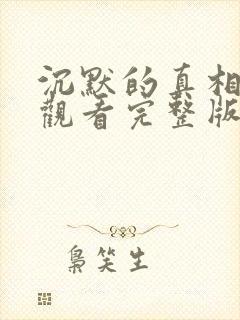 沉默的真相
觀看完整版
梟笑生